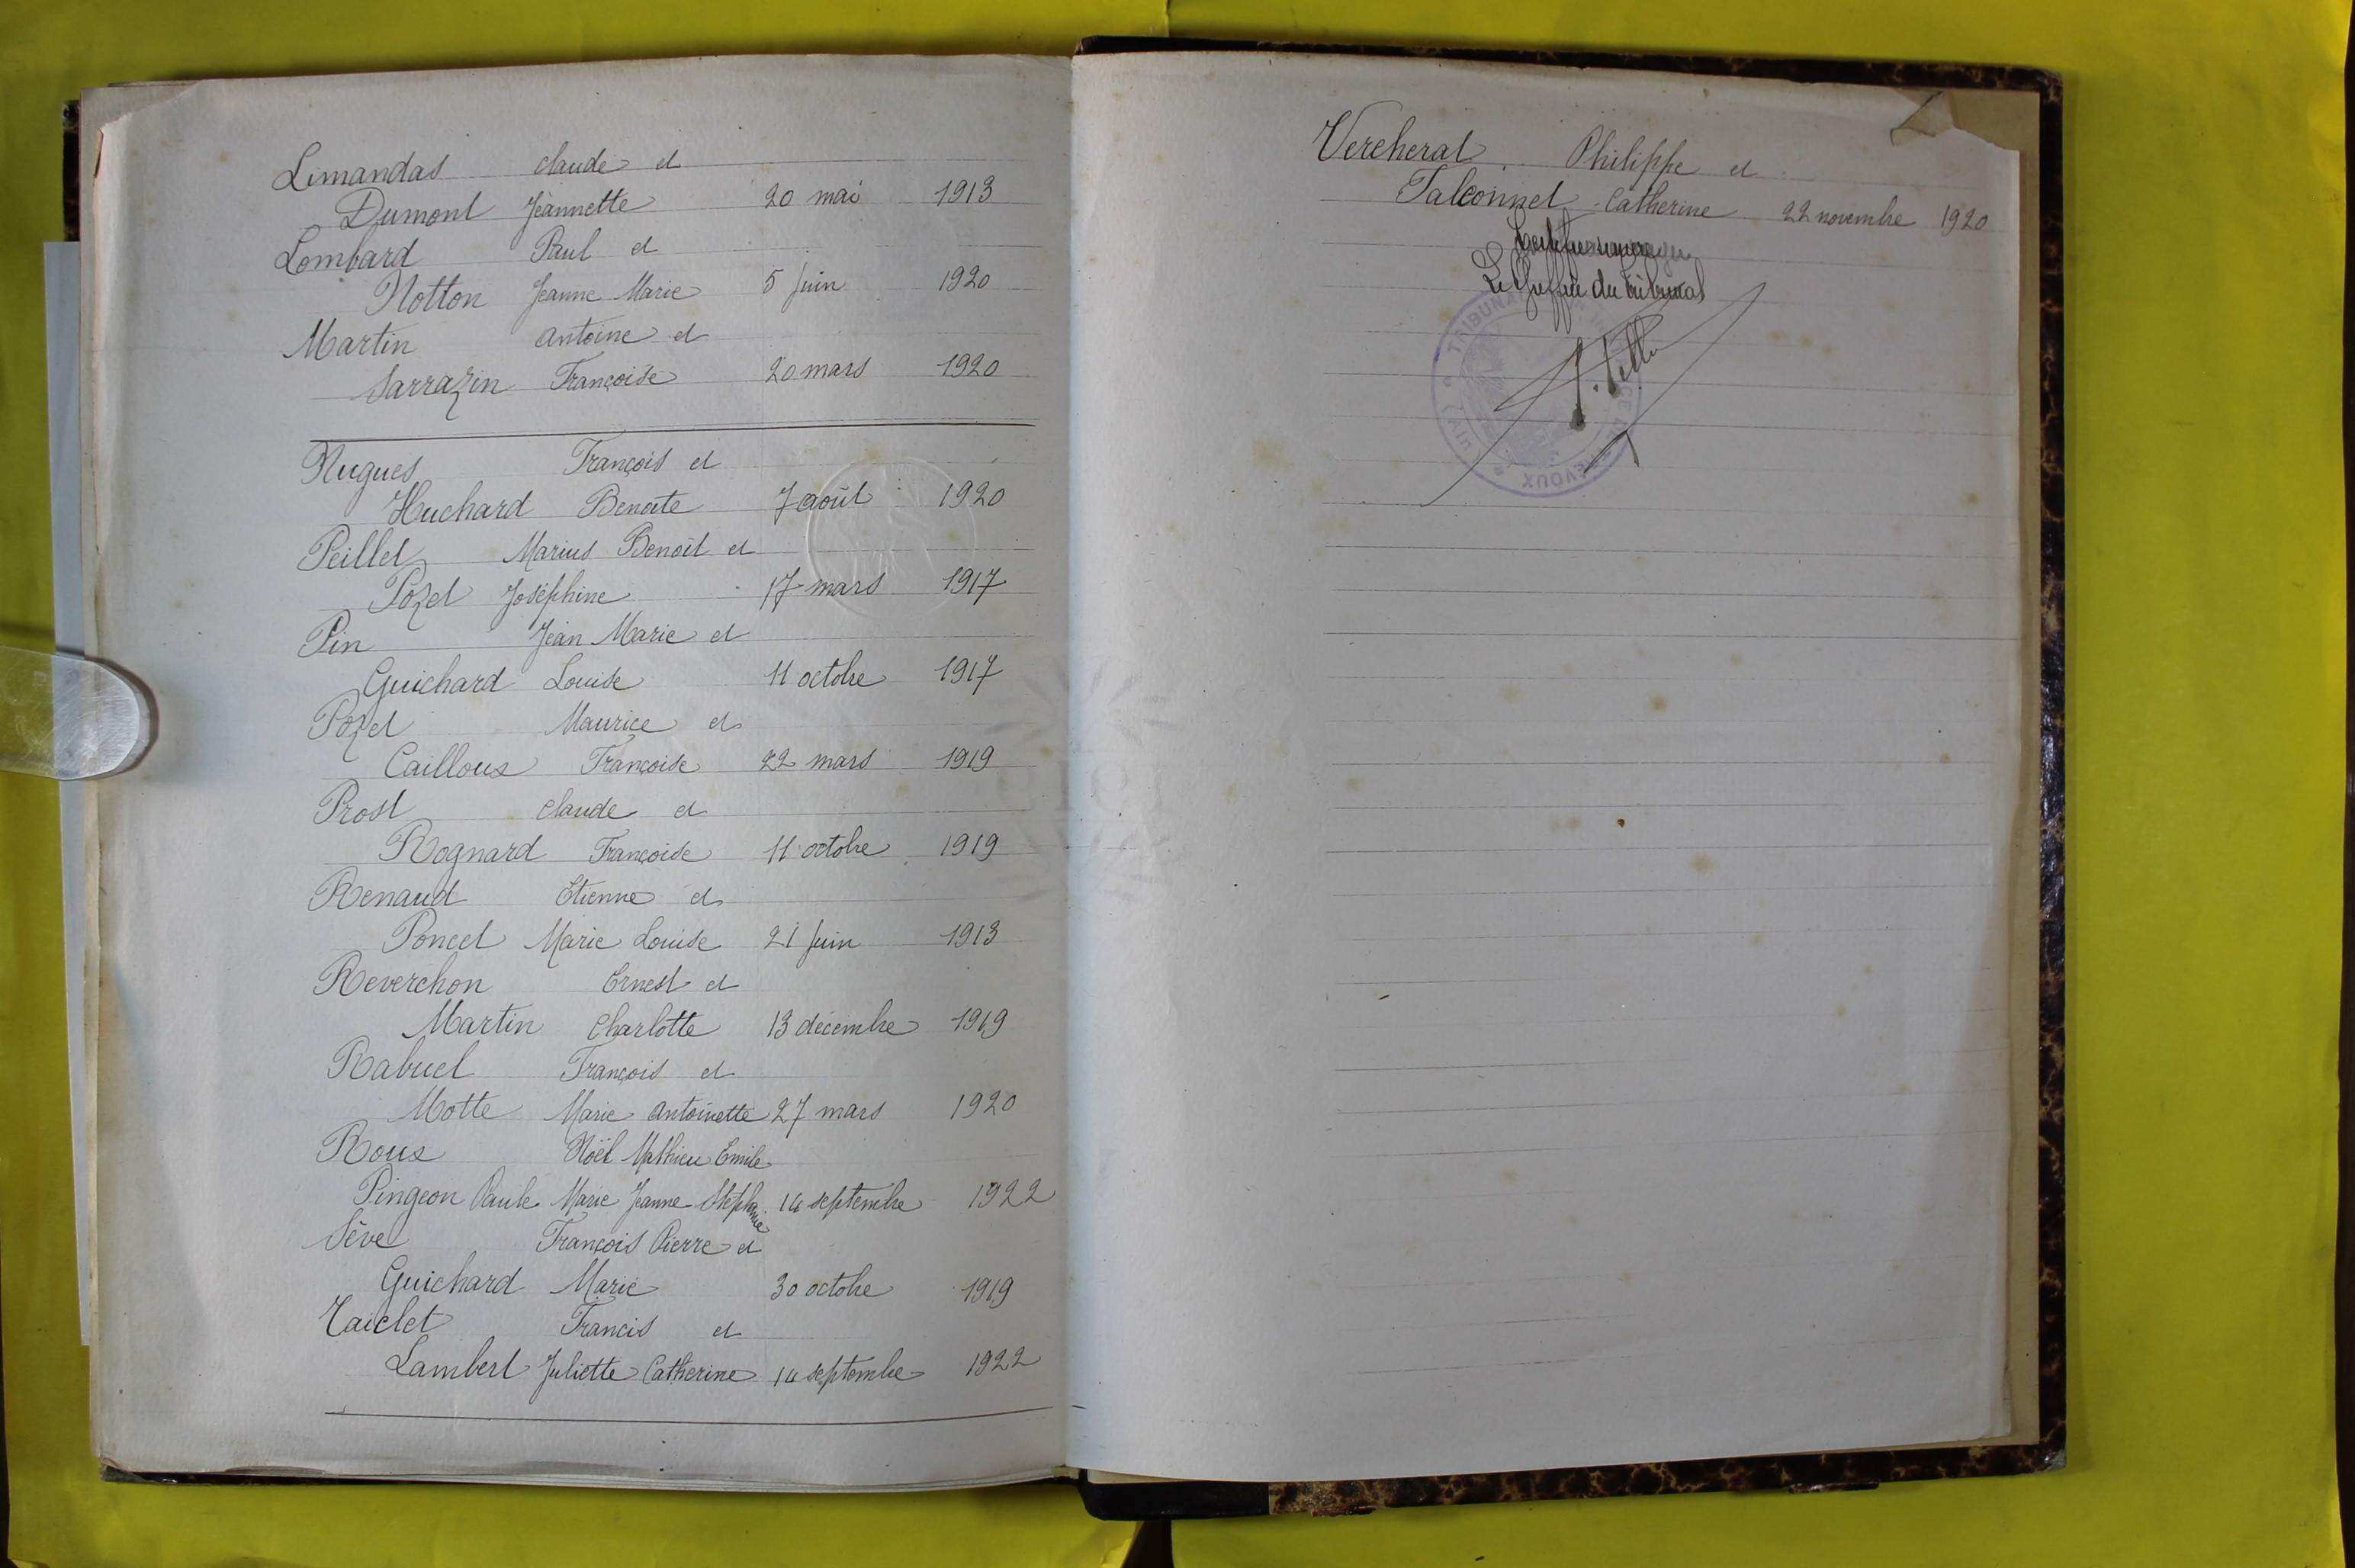 Limandas claude et
Dumont Jeannette 20 mai 1913
Lombard Paul et
Notton Jeanne Marie 5 juin 1920
Martin antoine et
Sarrazin Françoise 20 mars 1920
Nugues François et
Huchard Benoite 7 août 1920
Peillet Marius Benoît et
Pozet Joséphine 17 mars 1917
Pin Jean Marie et
Guichard Louise 11 octobre 1917
Pozet Maurice et
Cailloux Françoise 22 mars 1919
Prost claude et
Rognard Françoise 11 octobre 1919
Renaud Etienne et
Poncet Marie Louise 21 juin 1913
Reverchon Ernest et
Martin Charlotte 13 décembre 1919
Rabuel François et
Motte Marie antoinette 27 mars 1920
Roux Noël Mathieu Emile
Pingeon Paule Marie Jeanne Stephanie 14 septembre 1922
Sève François Pierre et
Guichard Marie 30 octobre 1919
Taiclet Francis et
Lambert Juliette Catherine 14 septembre 1922
Vercherat Philippe et
Falconnet Catherine 22 novembre 1920
Le Greffier du tribunal
TRIBUNAL
TREVOUX (AIN)